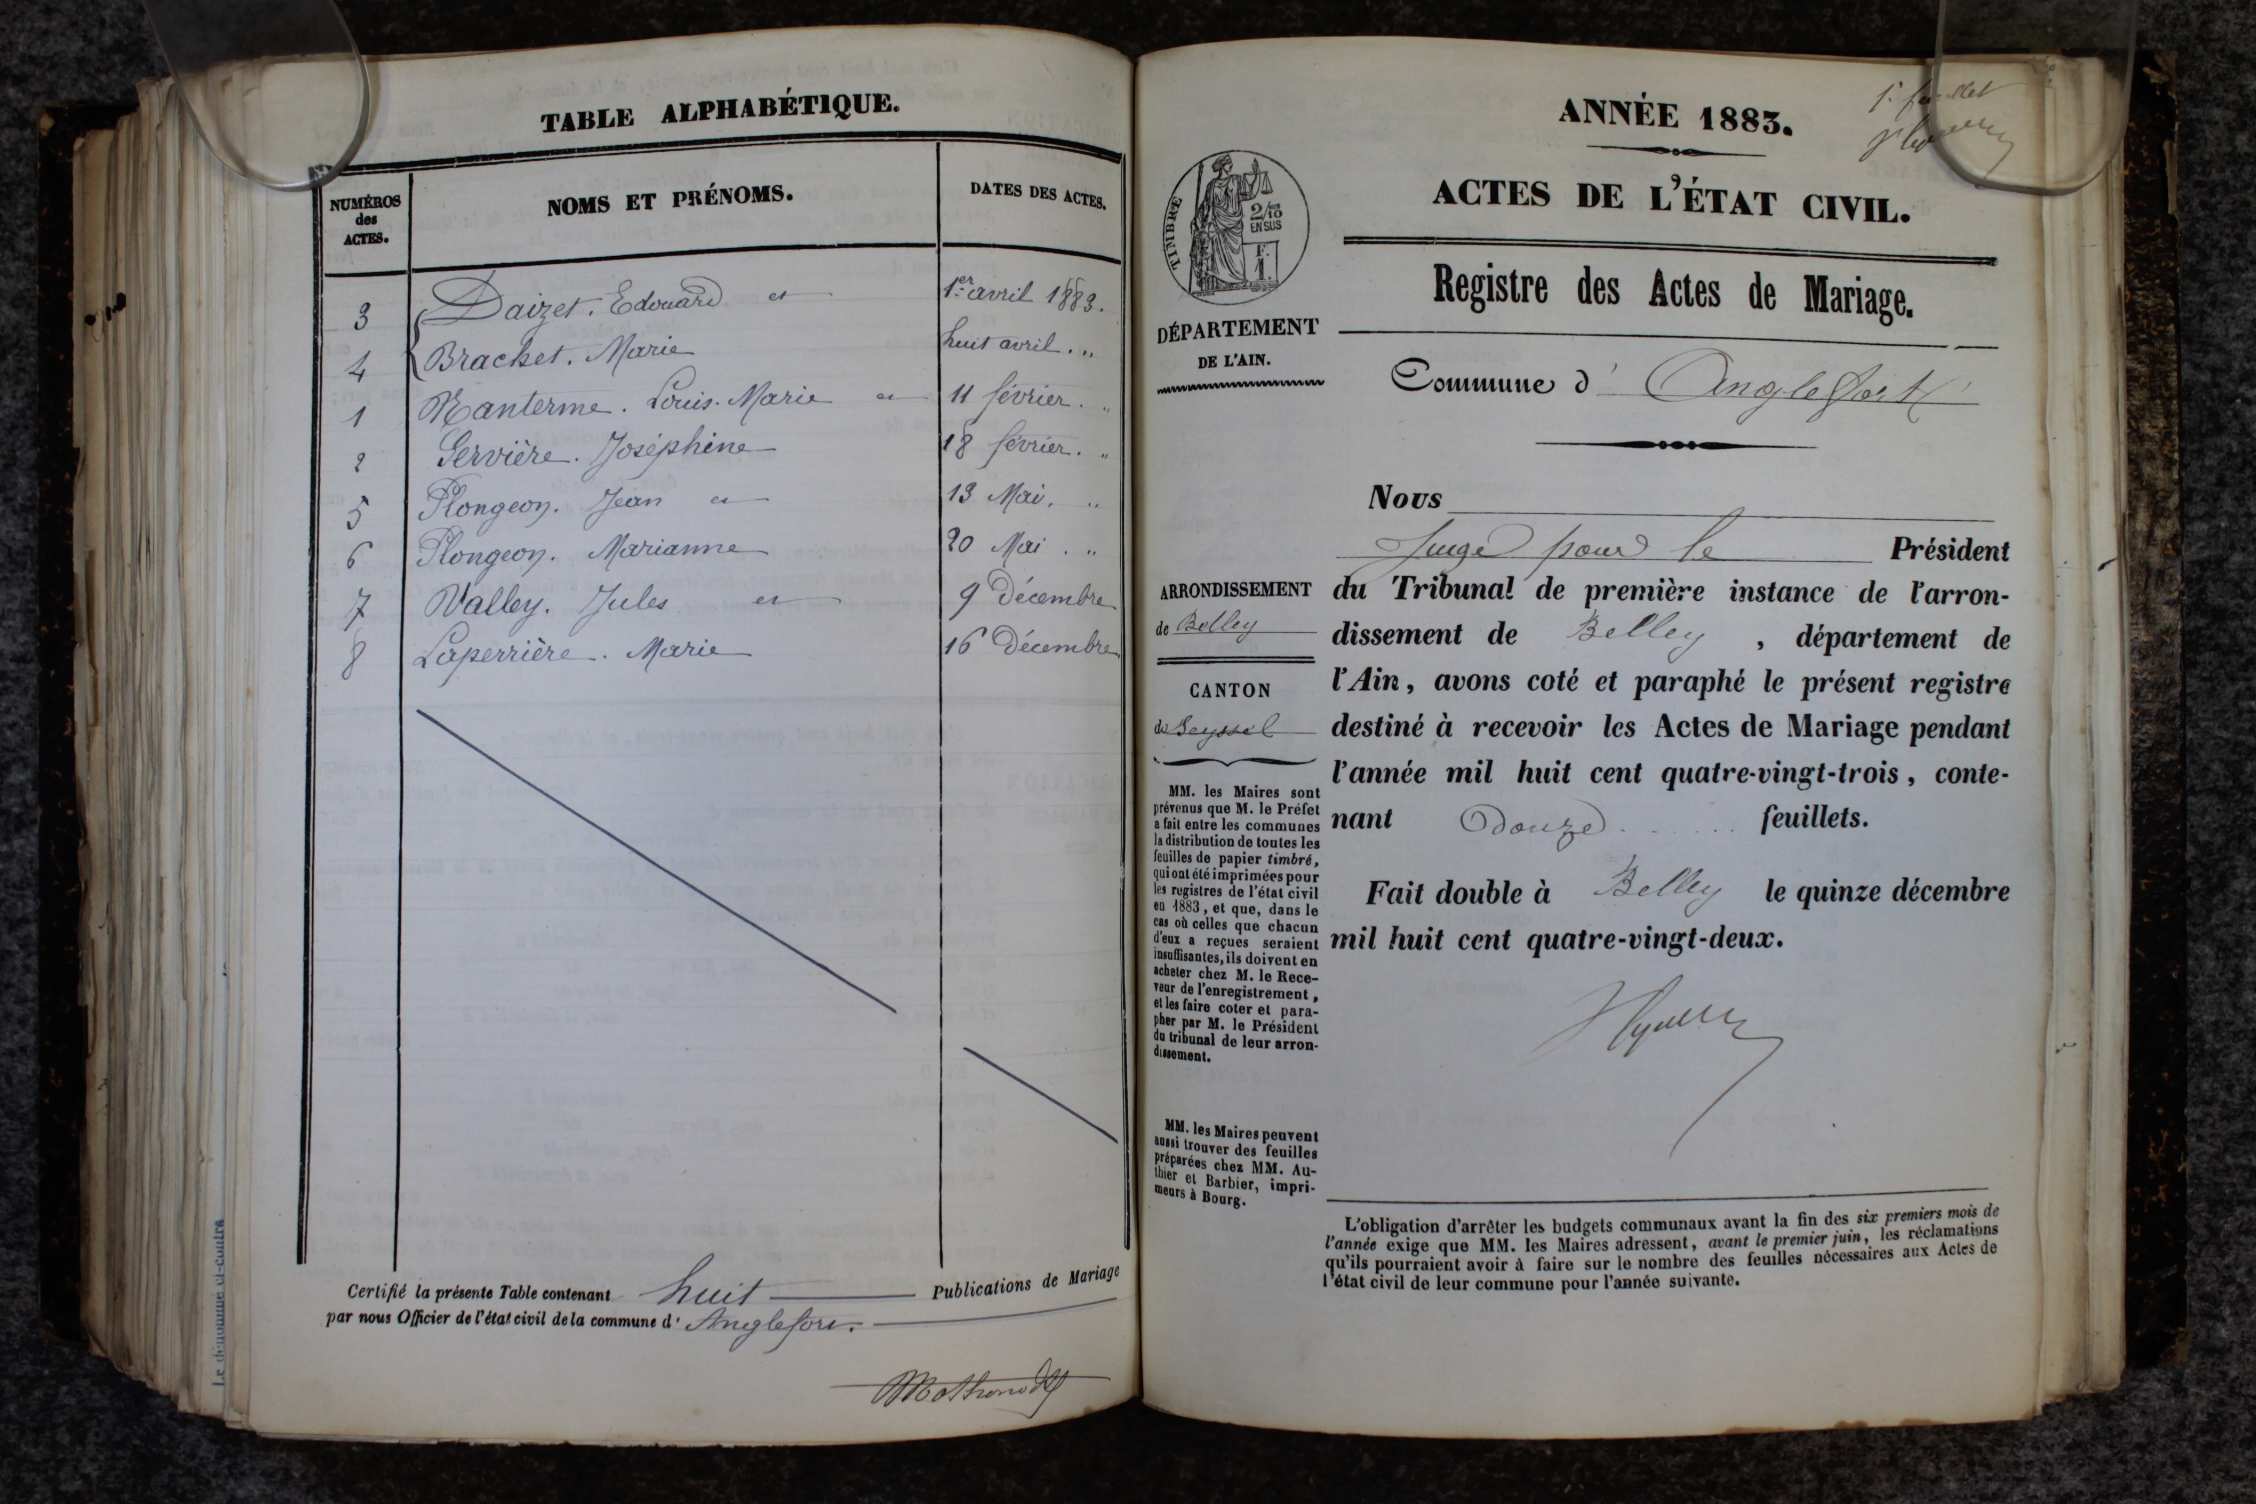 TABLE ALPHABÉTIQUE.
NUMÉROS
des
ACTES.
NOMS ET PRÉNOMS.
DATES DES ACTES.
3 Daizet. Edouard et 1er avril 1883.
4 Brachet. Marie huit avril. "
1 Manterme. Louis. Marie et 11 février. "
2 Servière. Joséphine 18 février. "
5 Plongeon. Jean et 13 Mai. "
6 Plongeon. Marianne 20 Mai. "
7 Valley. Jules et 9 Décembre
8 Laperrière. Marie 16 Décembre
Certifié la présente Table contenant huit Publications de Mariage
par nous Officier de l'état civil de la commune d' Anglefort.
Le dénommé ci-contre
1er feuillet
ANNÉE 1883.
ACTES DE L'ÉTAT CIVIL.
Registre des Actes de Mariage.
Commune d' Anglefort
TIMBRE
2/10
EN SUS
F.
1.
DÉPARTEMENT
DE L'AIN.
ARRONDISSEMENT
de Belley
CANTON
de Seyssel
MM. les Maires sont
prévenus que M. le Préfet
a fait entre les communes
la distribution de toutes les
feuilles de papier timbré,
qui ont été imprimées pour
les registres de l'état civil
en 1883, et que, dans le
cas où celles que chacun
d'eux a reçues seraient
insuffisantes, ils doivent en
acheter chez M. le Rece-
veur de l'enregistrement,
et les faire coter et para-
pher par M. le Président
du tribunal de leur arron-
dissement.
MM. les Maires peuvent
aussi trouver des feuilles
préparées chez MM. Au-
thier et Barbier, impri-
meurs à Bourg.
Nous
Juge pour le Président
du Tribunal de première instance de l'arron-
dissement de Belley , département de
l'Ain, avons coté et paraphé le présent registre
destiné à recevoir les Actes de Mariage pendant
l'année mil huit cent quatre-vingt-trois, conte-
nant Douze feuillets.
Fait double à Belley le quinze décembre
mil huit cent quatre-vingt-deux.
L'obligation d'arrêter les budgets communaux avant la fin des six premiers mois de
l'année exige que MM. les Maires adressent, avant le premier juin, les réclamations
qu'ils pourraient avoir à faire sur le nombre des feuilles nécessaires aux Actes de
l'état civil de leur commune pour l'année suivante.